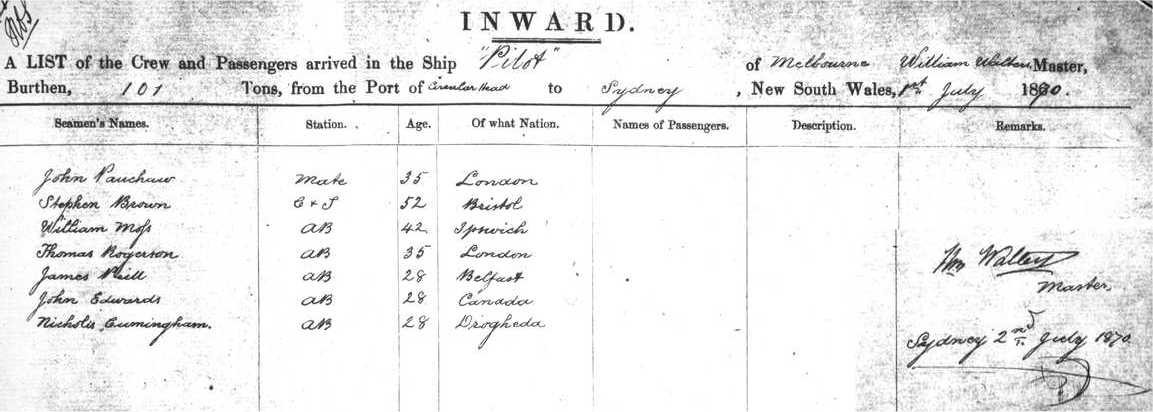 INWARD.
A LIST of the Crew and Passengers arrived in the Ship "Pilot" of Melbourne William Walters, Master,
Burthen, 101 Tons, from the Port of Circular Head to Sydney, New South Wales, 1st July 1870.
Seamen's Names. Station. Age. Of what Nation. Names of Passengers. Description. Remarks.
John Mate 35 London
Stephen Brown C & S 52 Bristol
William Moss AB 42 Ipswich
Thomas Rogerson AB 35 London
James Neill AB 28 Belfast
John Edwards AB 28 Canada
Nicholis Cumingham. AB 28 Drogheda
Wm Walters
Master,
Sydney 2nd July 1870.